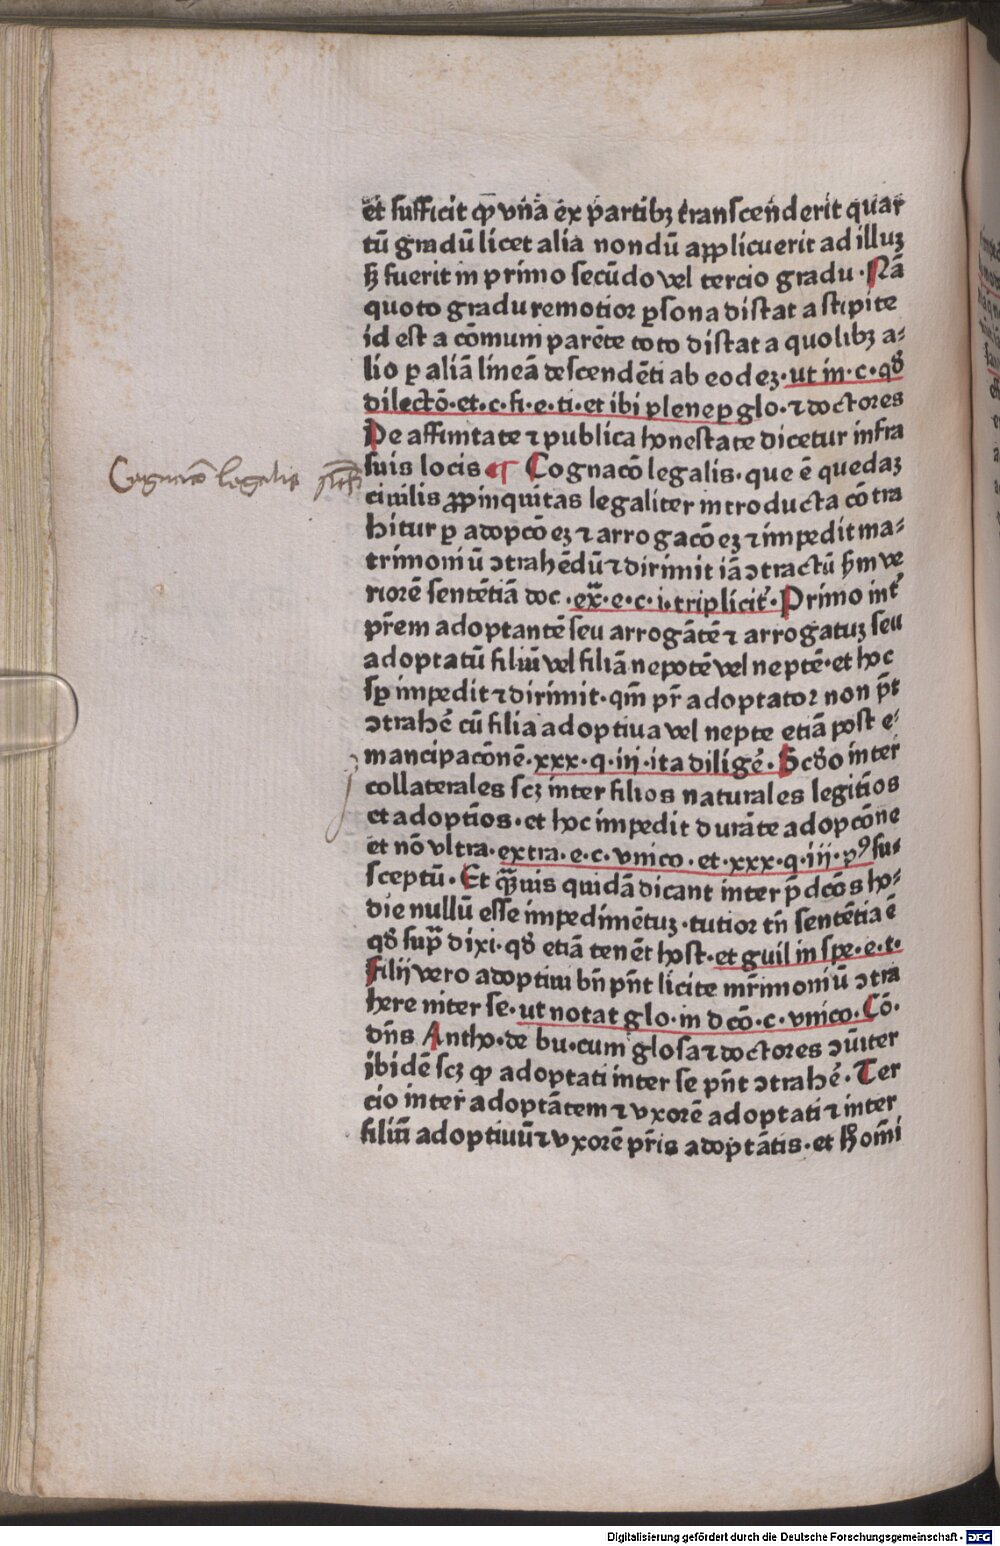 et sufficit ꝙ vna ex partibꝫ transcenderit quar
tū gradū licet alia nondū applicuerit ad illuꝫ
ſꝫ fuerit in primo secūdo vel tercio gradu · Nā
quoto gradu remotior ꝑsona distat a stipite
id est a cōmuni parēte toto distat a quolibꝫ a⸗
lio ꝑ aliā lineā descendēti ab eodeꝫ · ut in · c · qđ
dilectō · et · c · fi · e · ti · et ibi plene ꝑ glo · ⁊ doctores
De affinitate ⁊ publica honestate dicetur infra
suis locis ¶ Cognacō legalis · que ē quedaꝫ
Cognacō legalis
ciuilis ꝓpinquitas legaliter introducta cōtra
hitur ꝑ adopcōeꝫ ⁊ arrogacōeꝫ ⁊ impedit ma⸗
trimoniū ↄtrahēdū ⁊ dirimit iā ↄtractū ẜm ve
riorē sentētiā doc · exͣ · e · c · i · triplicit̄ · Primo int̄
pr̄em adoptantē seu arrogātē ⁊ arrogatuꝫ seu
adoptatū filiū vel filiā nepotē vel neptē · et hoc
sꝑ impedit ⁊ dirimit · qm̄ pr̄ adoptator non pn̄t
ↄtrahē cū filia adoptiua vel nepte etiā post e⸗
mancipacōnē · xxx · q · iij · ita diligē · Scđo inter
collaterales scꝫ inter filios naturales legitīos
et adoptīos · et hoc impedit durāte adopcōne
et nō vltra · extra · e · c · vnico · et · xxx · q · iij · pꝰ su⸗
sceptū · Et qͣuis quidā dicant inter p̄dcōs ho⸗
die nullū esse impedimētuꝫ · tutior tn̄ sentētia ē
qđ supͣ dixi · qđ etiā tenēt host · et guil in spe · e · t ·
Filij vero adoptiui bn̄ pn̄t licite mr̄imoniū ↄtra
here inter se · ut notat glo · in dcō · c · vnico · Cō ·
dn̄s Antho · de bu · cum glosa ⁊ doctores ↄūiter
ibidē scꝫ ꝙ adoptati inter se pn̄t ↄtrahē · Ter
cio inter adoptātem ⁊ vxorē adoptati ⁊ inter
filiū adoptiuū ⁊ vxorē pr̄is adoptātis · et ħ omī
Digitalisierung gefördert durch die Deutsche Forschungsgemeinschaft - DFG